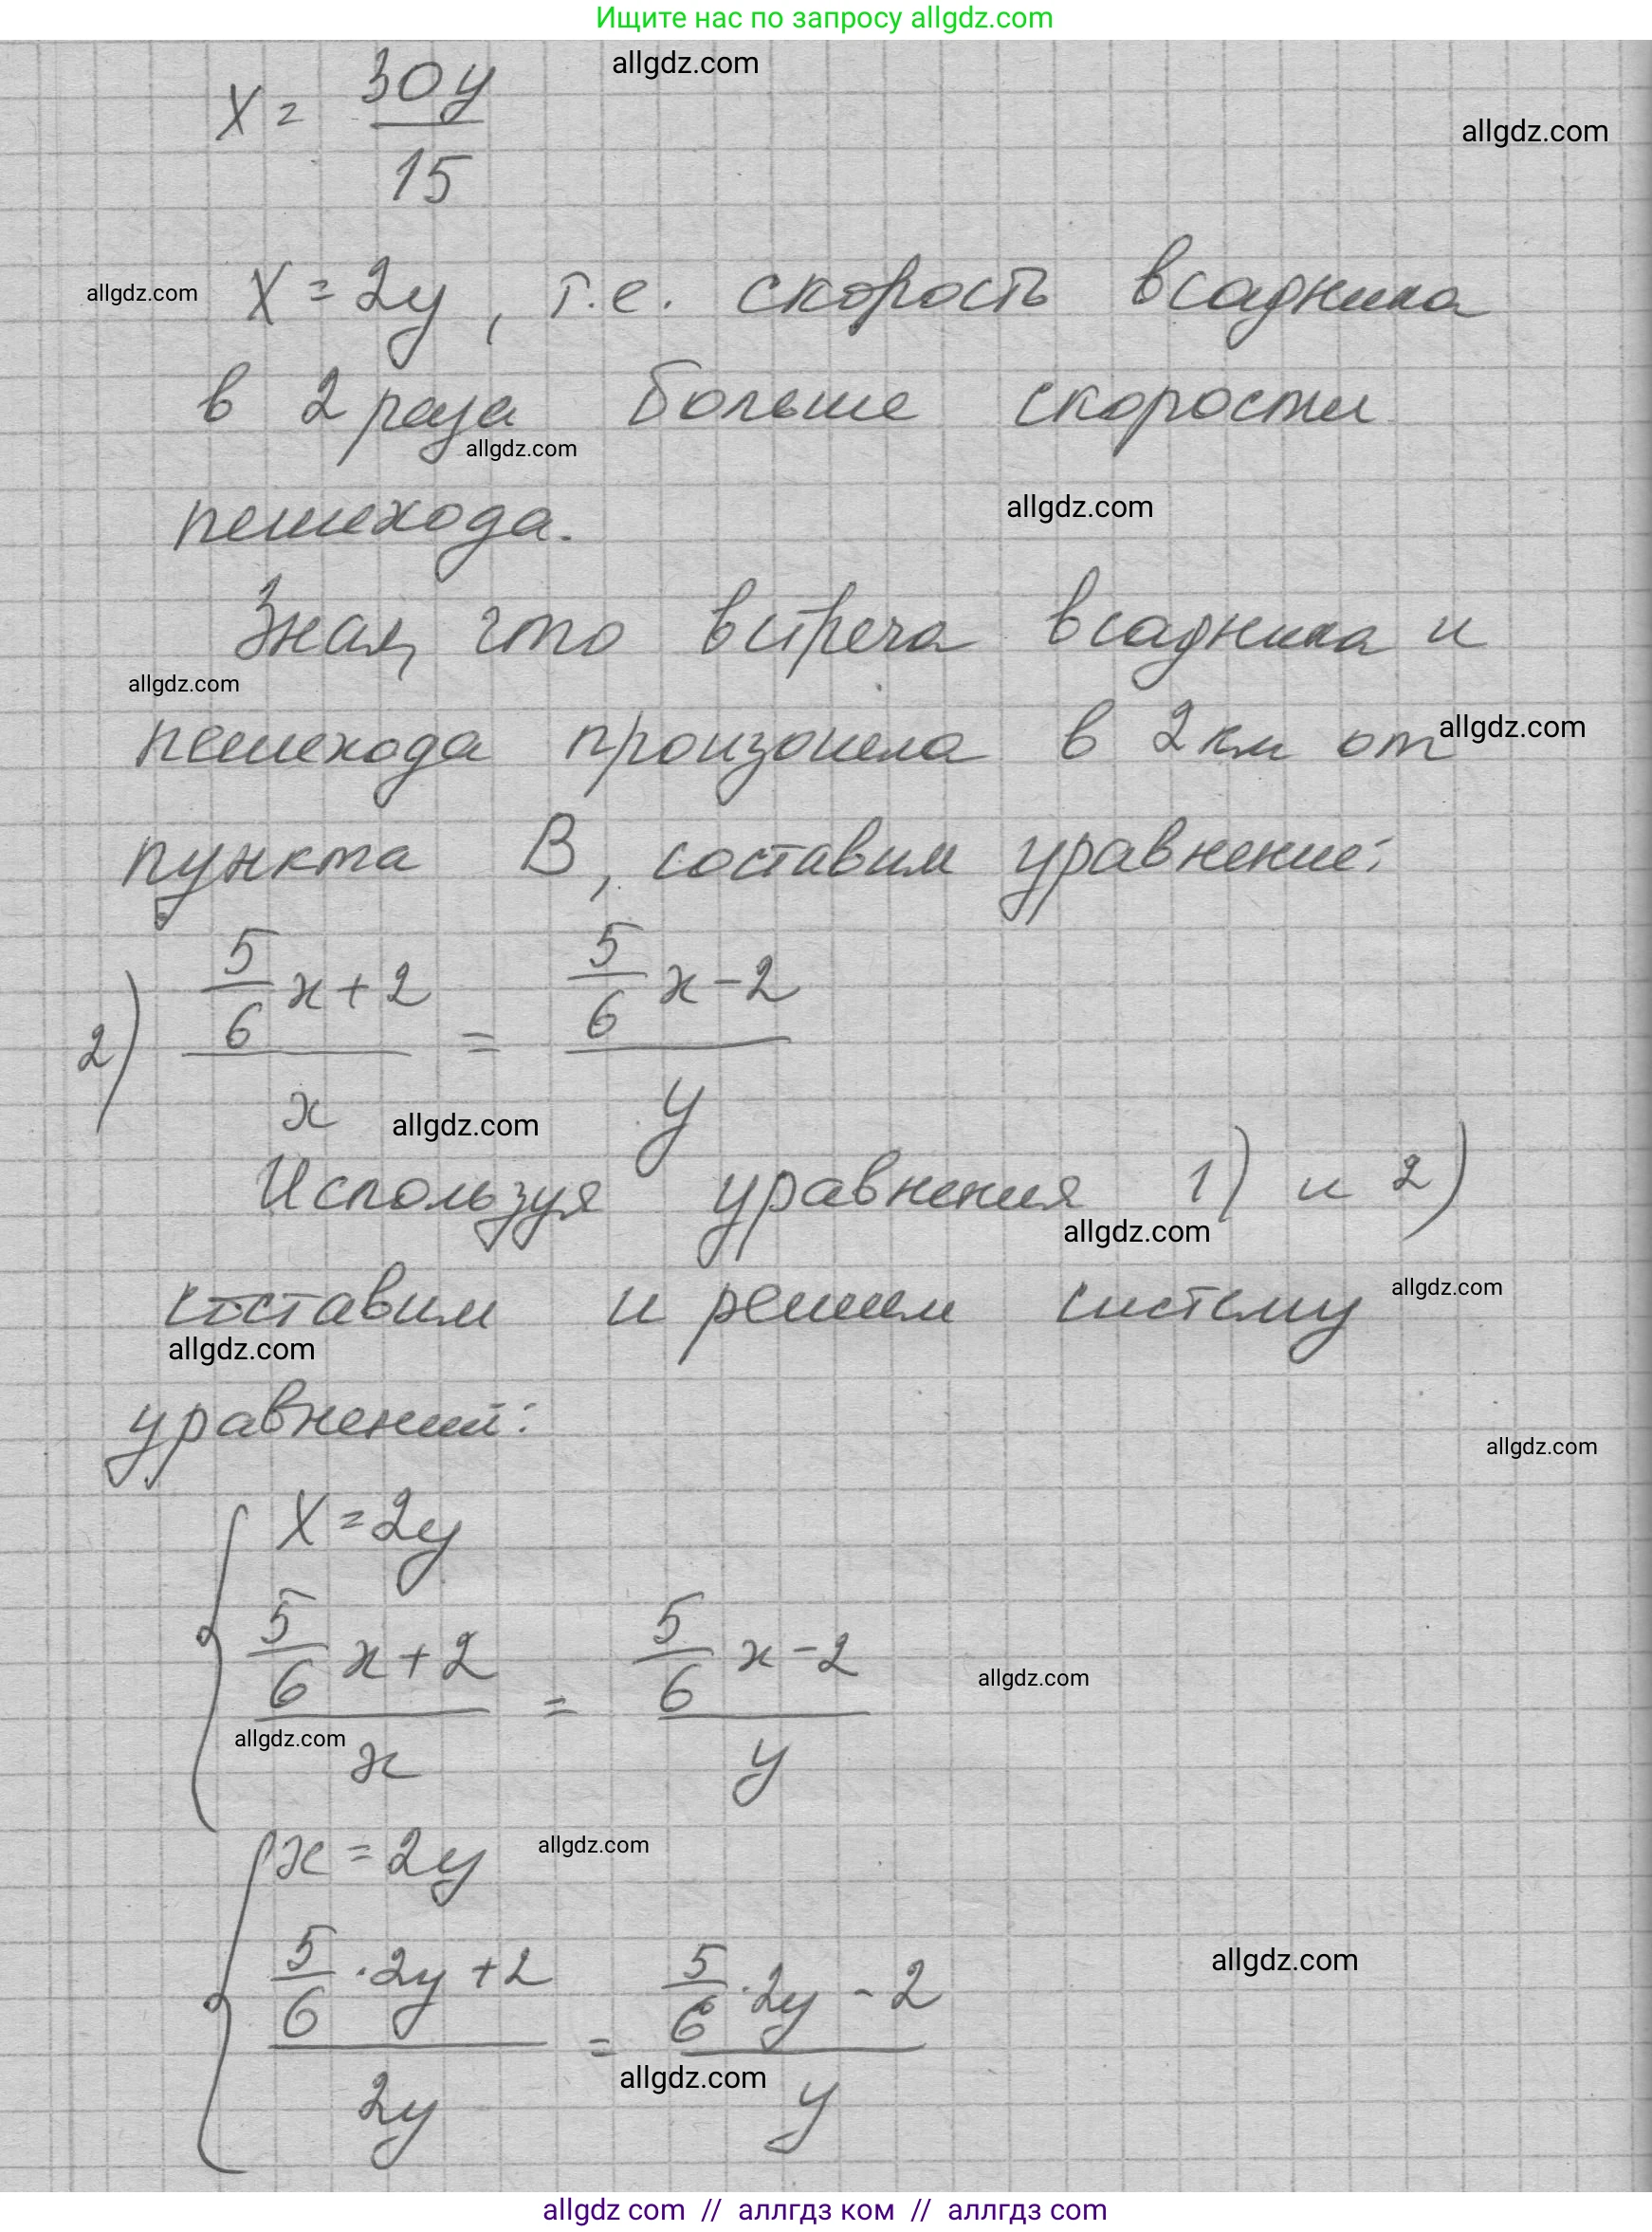 Ищите нас по запросу allgdz.com
allgdz.com
x = 30y / 15
allgdz.com
allgdz.com
x = 2y, т.е. скорость всадника
в 2 раза больше скорости
allgdz.com
пешехода.
allgdz.com
Зная, что встреча всадника и
allgdz.com
пешехода произошла в 2 км от
allgdz.com
пункта B, составим уравнение:
2) (5/6 x + 2) / x = (5/6 x - 2) / y
allgdz.com
Используя уравнения 1) и 2)
allgdz.com
составим и решим систему
allgdz.com
allgdz.com
уравнений:
allgdz.com
{ x = 2y
(5/6 x + 2) / x = (5/6 x - 2) / y
allgdz.com
allgdz.com
{ x = 2y
allgdz.com
(5/6 · 2y + 2) / 2y = (5/6 · 2y - 2) / y
allgdz.com
allgdz.com
allgdz com // аллгдз ком // аллгдз com